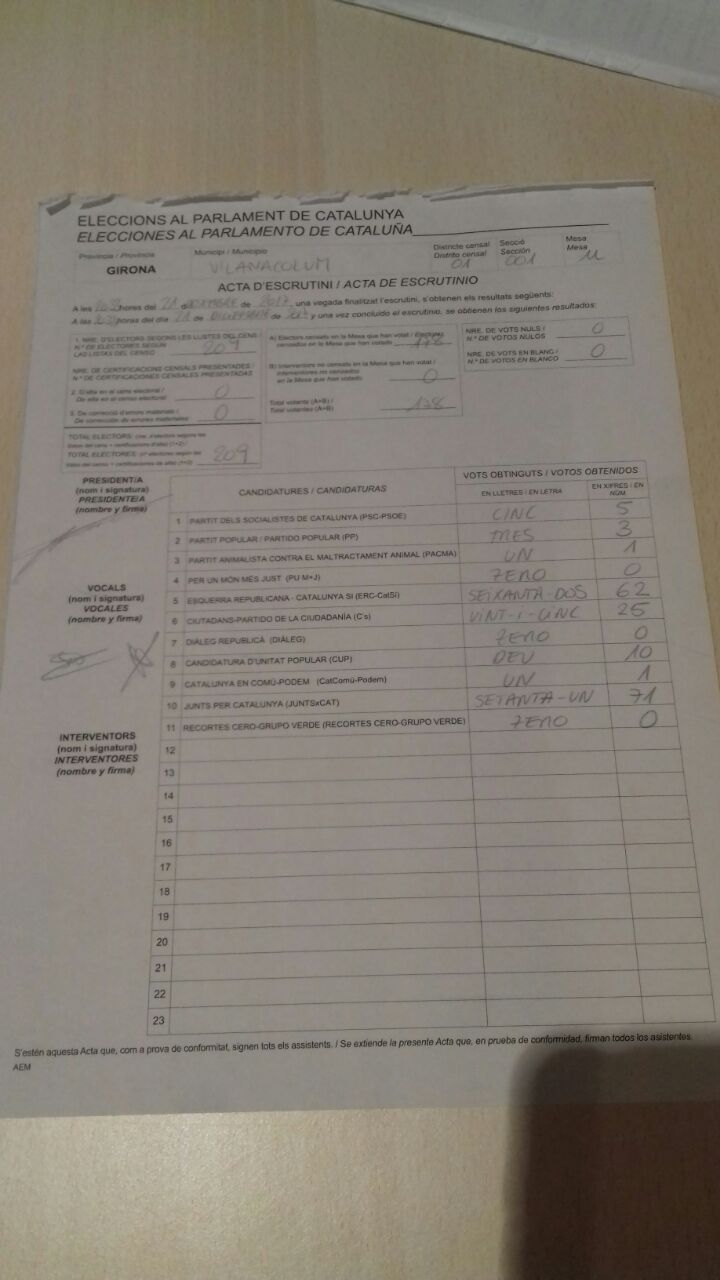 ELECCIONS AL PARLAMENT DE CATALUNYA
ELECCIONES AL PARLAMENTO DE CATALUÑA
Província / Provincia Municipi / Municipio Districte censal Secció Mesa
Distrito censal Sección Mesa
GIRONA VILANACOLUM 01 001 U
ACTA D'ESCRUTINI / ACTA DE ESCRUTINIO
A les hores del 21 d DESEMBRE de 2017, una vegada finalitzat l'escrutini, s'obtenen els resultats següents:
A las horas del día 21 de de y una vez concluido el escrutinio, se obtienen los siguientes resultados:
1. NRE. D'ELECTORS SEGONS LES LLISTES DEL CENS /
N.º DE ELECTORES SEGÚN
LAS LISTAS DEL CENSO 209
NRE. DE CERTIFICACIONS CENSALS PRESENTADES /
N.º DE CERTIFICACIONES CENSALES PRESENTADAS
2. D'alta en el cens electoral /
De alta en el censo electoral 0
3. De correcció d'errors materials /
De corrección de errores materiales 0
TOTAL ELECTORS:
TOTAL ELECTORES: 209
A) Electors censats en la Mesa que han votat / Electores
censados en la Mesa que han votado 178
B) Interventors no censats en la Mesa que han votat /
Interventores no censados
en la Mesa que han votado 0
Total votants (A+B) /
Total votantes (A+B) 178
NRE. DE VOTS NULS /
N.º DE VOTOS NULOS 0
NRE. DE VOTS EN BLANC /
N.º DE VOTOS EN BLANCO 0
PRESIDENT/A
(nom i signatura)
PRESIDENTE/A
(nombre y firma)
VOCALS
(nom i signatura)
VOCALES
(nombre y firma)
INTERVENTORS
(nom i signatura)
INTERVENTORES
(nombre y firma)
CANDIDATURES / CANDIDATURAS VOTS OBTINGUTS / VOTOS OBTENIDOS
EN LLETRES / EN LETRA EN XIFRES / EN NÚM.
1 PARTIT DELS SOCIALISTES DE CATALUNYA (PSC-PSOE) CINC 5
2 PARTIT POPULAR / PARTIDO POPULAR (PP) TRES 3
3 PARTIT ANIMALISTA CONTRA EL MALTRACTAMENT ANIMAL (PACMA) UN 1
4 PER UN MÓN MÉS JUST (PU M+J) ZERO 0
5 ESQUERRA REPUBLICANA - CATALUNYA SÍ (ERC-CatSí) SEIXANTA-DOS 62
6 CIUTADANS-PARTIDO DE LA CIUDADANÍA (C's) VINT-I-CINC 25
7 DIÀLEG REPUBLICÀ (DIÀLEG) ZERO 0
8 CANDIDATURA D'UNITAT POPULAR (CUP) DEU 10
9 CATALUNYA EN COMÚ-PODEM (CatComú-Podem) UN 1
10 JUNTS PER CATALUNYA (JUNTSxCAT) SETANTA-UN 71
11 RECORTES CERO-GRUPO VERDE (RECORTES CERO-GRUPO VERDE) ZERO 0
12
13
14
15
16
17
18
19
20
21
22
23
S'estén aquesta Acta que, com a prova de conformitat, signen tots els assistents. / Se extiende la presente Acta que, en prueba de conformidad, firman todos los asistentes.
AEM